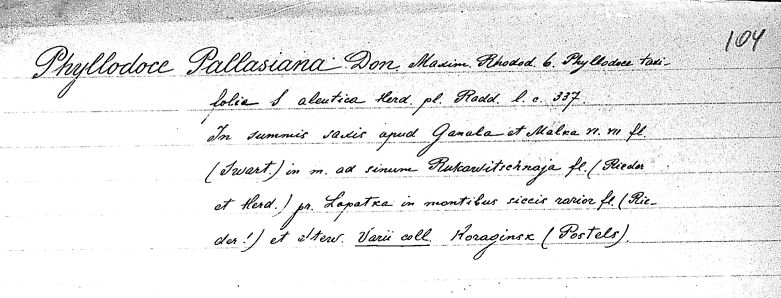 104
Phyllodoce Pallasiana Don. Maxim. Rhodod. 6. Phyllodoce taxi-
folia δ aleutica Herd. pl. Radd. l. c. 337.
In summis saxis apud Ganala et Malka n. m fl.
(Stwart.) in m. ad sinum Rukawitschnaja fl. (Rieder
et Herd.) pr. Lopatka in montibus siccis rarior fl. (Rie-
der!) et Stew. Varii coll. Koraginsk (Postels).